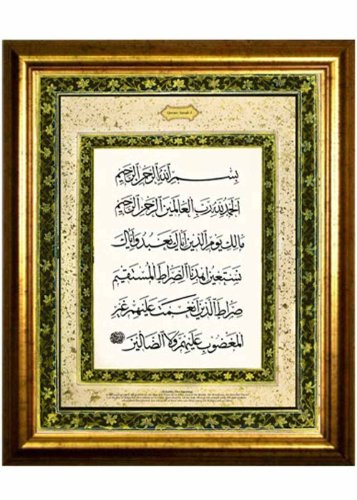 Quran: Surah 1
بسم الله الرحمن الرحيم
الحمد لله رب العالمين الرحمن الرحيم
مالك يوم الدين اياك نعبد واياك
نستعين اهدنا الصراط المستقيم
صراط الذين انعمت عليهم غير
المغضوب عليهم ولا الضالين